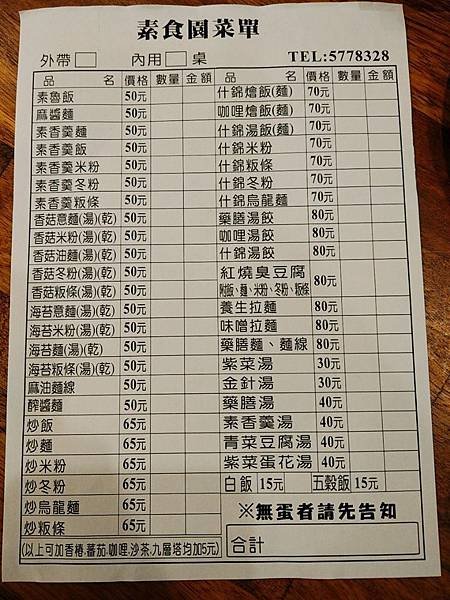 素食園菜單
外帶 內用 桌 TEL:5778328
品 名 價格 數量 金額
素魯飯 50元
麻醬麵 50元
素香羹麵 50元
素香羹飯 50元
素香羹米粉 50元
素香羹冬粉 50元
素香羹粄條 50元
香菇意麵(湯)(乾) 50元
香菇米粉(湯)(乾) 50元
香菇油麵(湯)(乾) 50元
香菇冬粉(湯)(乾) 50元
香菇粄條(湯)(乾) 50元
海苔意麵(湯)(乾) 50元
海苔米粉(湯)(乾) 50元
海苔麵(湯)(乾) 50元
海苔粄條(湯)(乾) 50元
麻油麵線 50元
酢醬麵 50元
炒飯 65元
炒麵 65元
炒米粉 65元
炒冬粉 65元
炒烏龍麵 65元
炒粄條 65元
(以上可加香椿.蕃茄.咖哩.沙茶.九層塔均加5元)
品 名 價格 數量 金額
什錦燴飯(麵) 70元
咖哩燴飯(麵) 70元
什錦湯飯(麵) 70元
什錦米粉 70元
什錦粄條 70元
什錦冬粉 70元
什錦烏龍麵 70元
藥膳湯餃 80元
咖哩湯餃 80元
什錦湯餃 80元
紅燒臭豆腐 80元
附飯、麵、米粉、冬粉、粄條
養生拉麵 80元
味噌拉麵 80元
藥膳麵、麵線 80元
紫菜湯 30元
金針湯 30元
藥膳湯 40元
素香羹湯 40元
青菜豆腐湯 40元
紫菜蛋花湯 40元
白飯 15元 五穀飯 15元
※無蛋者請先告知
合計